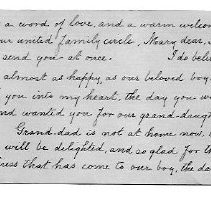 a word of love, and a warm welcom
ur united family circle. Mary dear, I
send you - at once. I do belie
almost as happy as our beloved boy,
you into my heart, the day you w
nd wanted you for our grand-daugh
Grand-dad is not at home now.
will be delighted, and so glad for th
ness that has come to our boy, the da